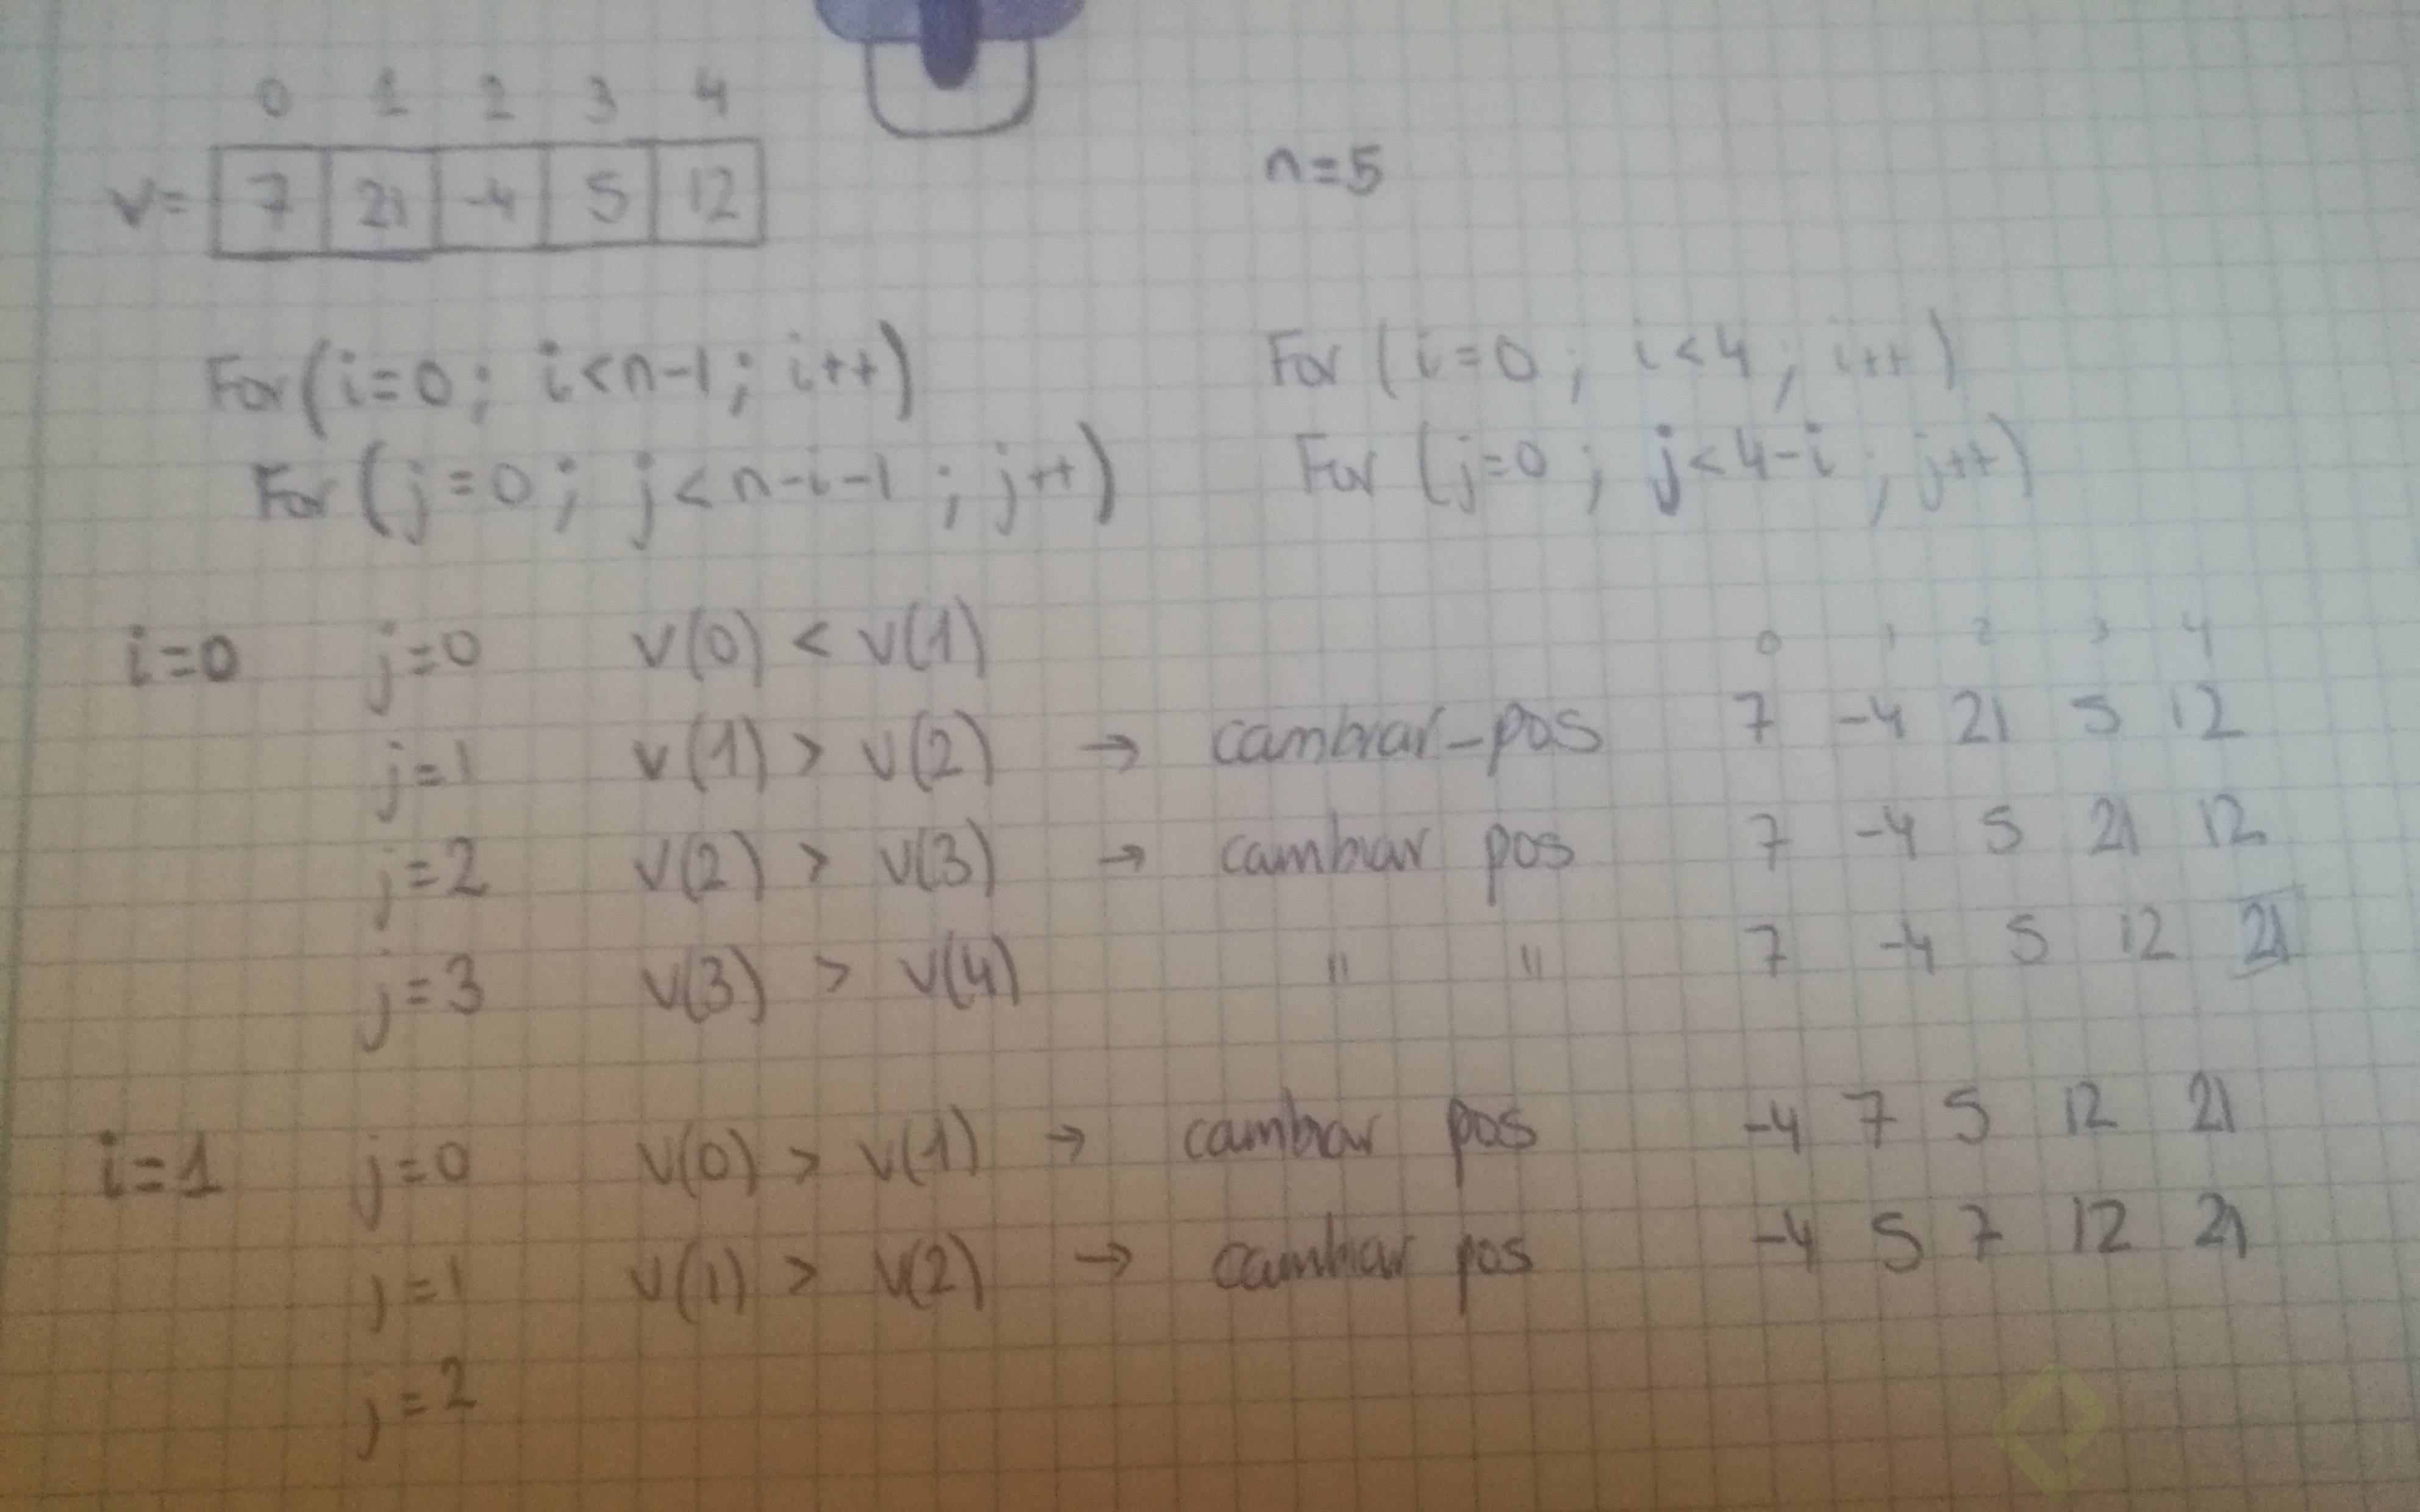 0 1 2 3 4
v= 7 21 -4 5 12 n=5
For (i=0; i<n-1; i++) For (i=0; i<4; i++)
For (j=0; j<n-i-1; j++) For (j=0; j<4-i; j++)
i=0 j=0 v(0) < v(1) 0 1 2 3 4
j=1 v(1) > v(2) → cambiar-pos 7 -4 21 5 12
j=2 v(2) > v(3) → cambiar pos 7 -4 5 21 12
j=3 v(3) > v(4) " " 7 -4 5 12 21
i=1 j=0 v(0) > v(1) → cambiar pos -4 7 5 12 21
j=1 v(1) > v(2) → cambiar pos -4 5 7 12 21
j=2